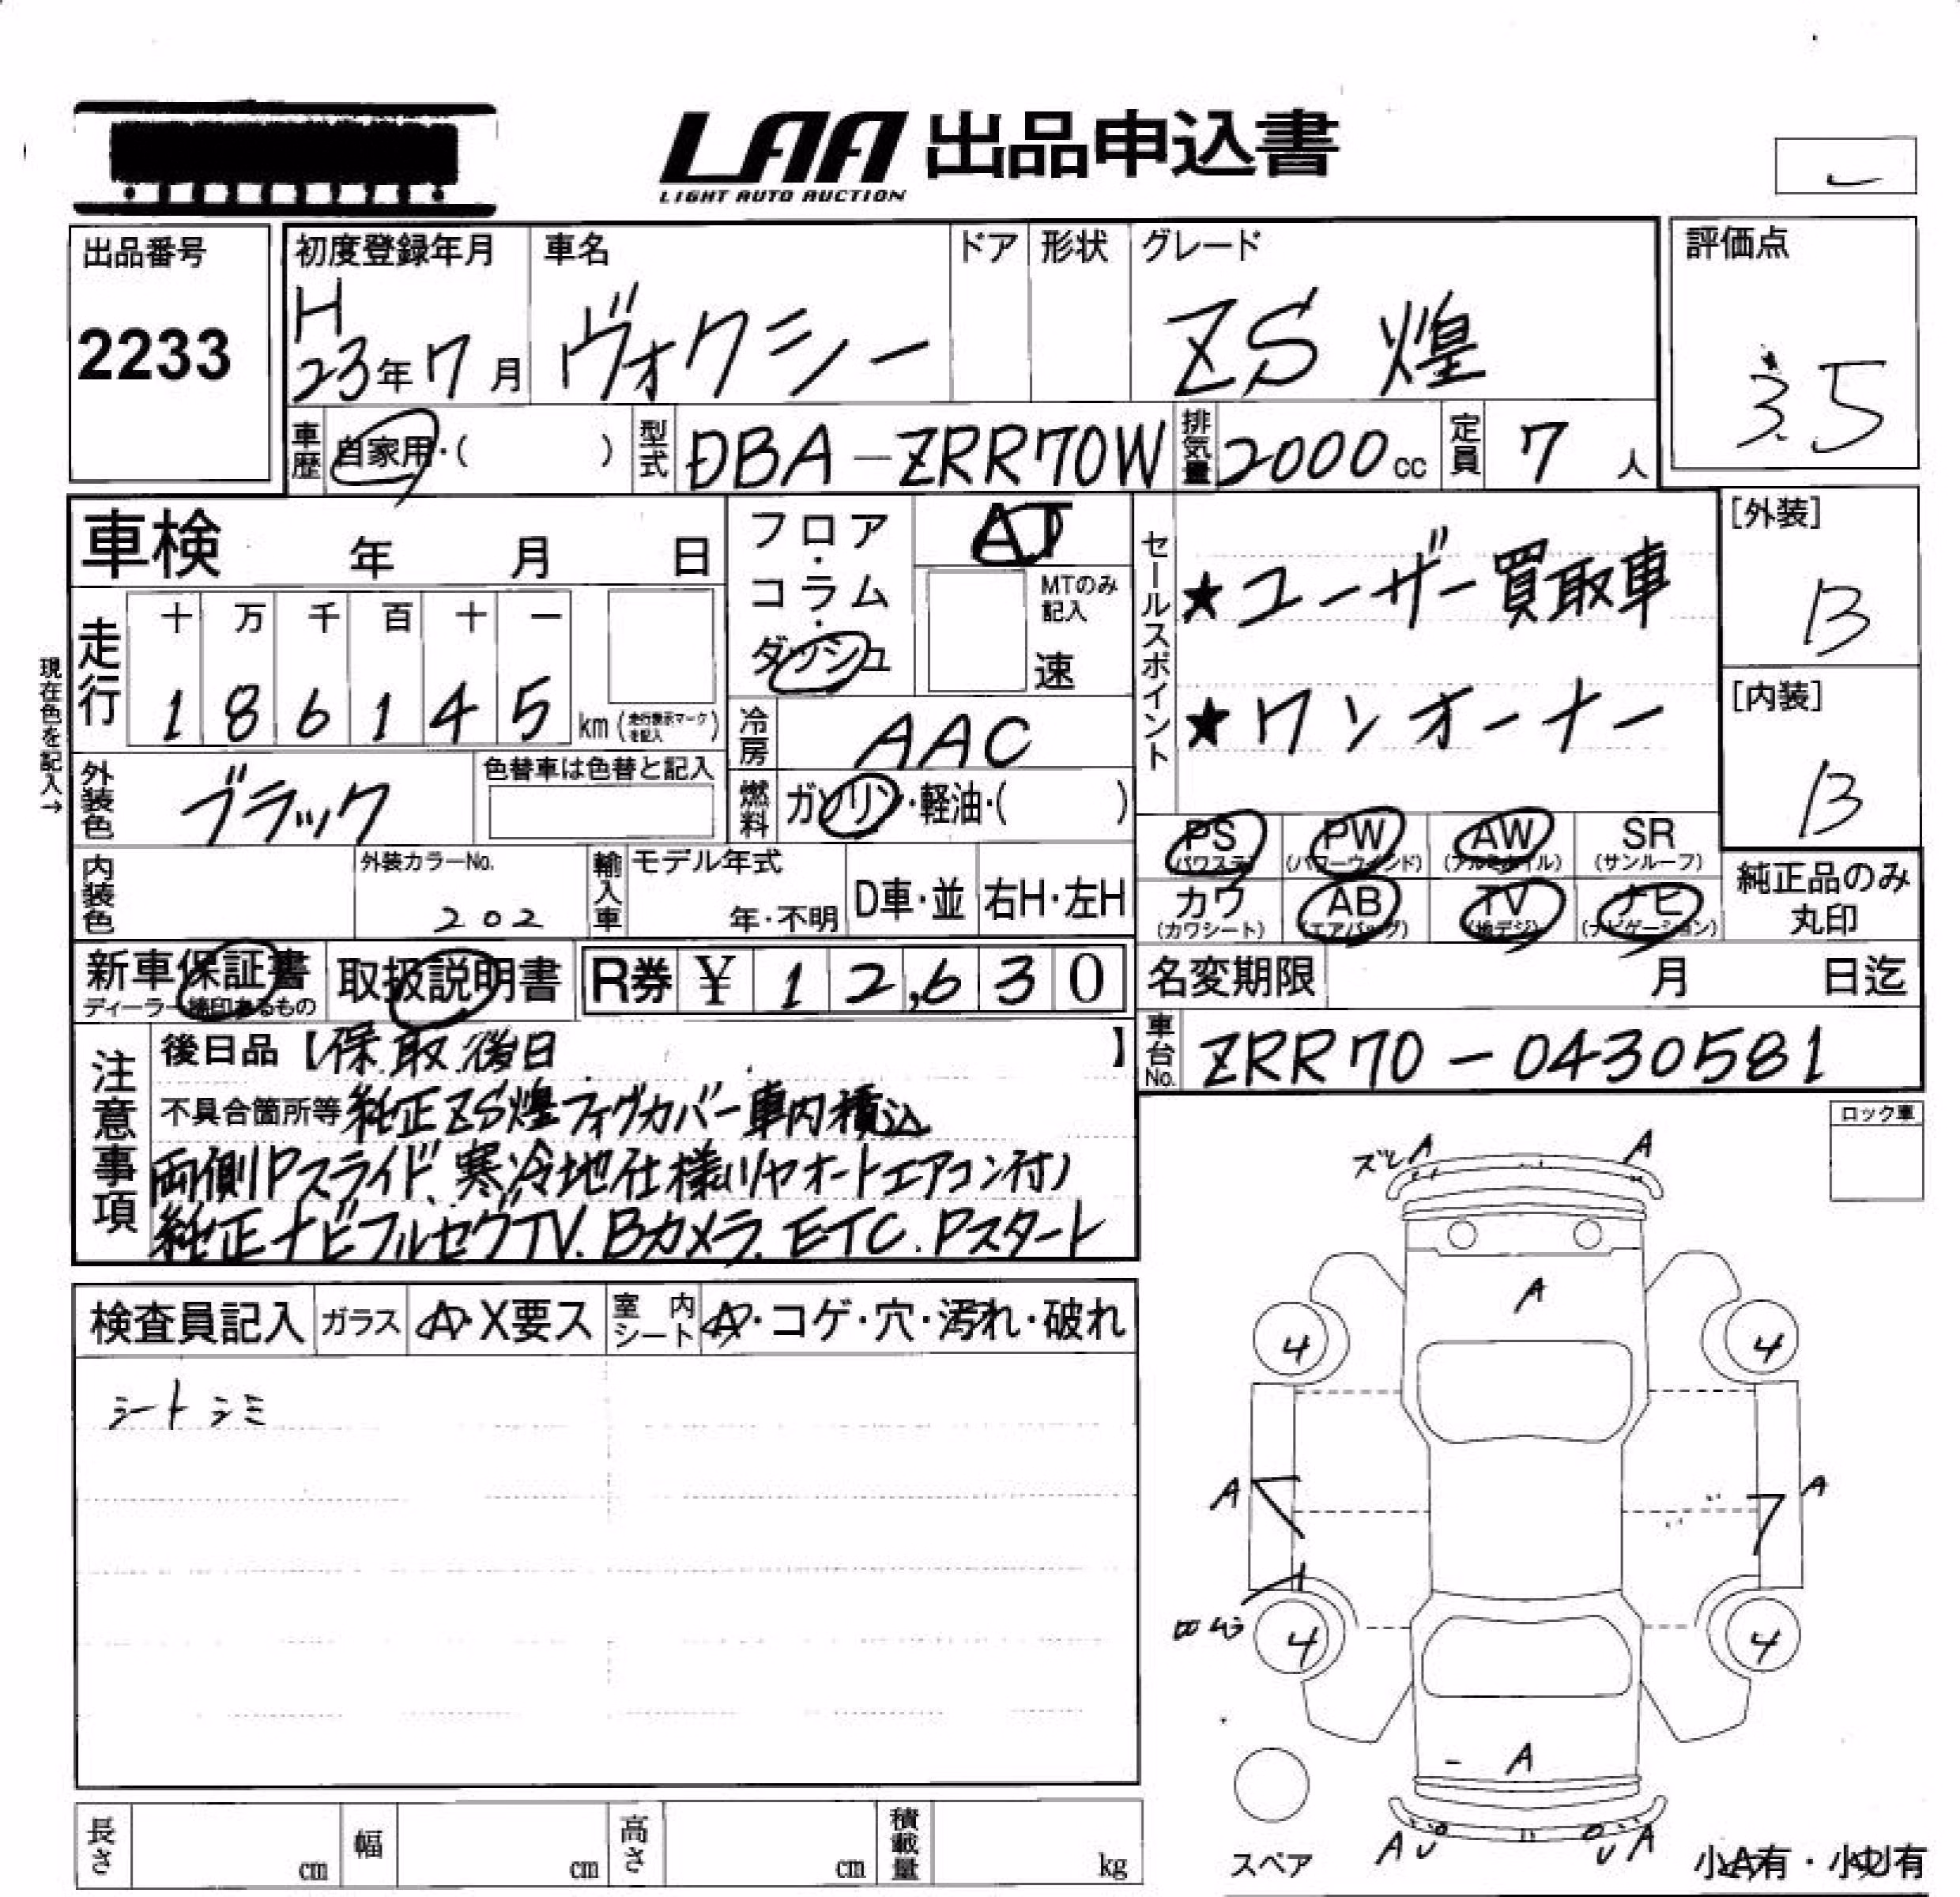 LAA 出品申込書
LIGHT AUTO AUCTION
出品番号
2233
初度登録年月
H
23年7月
車名
ヴォクシー
ドア
形状
グレード
ZS 煌
評価点
3.5
車歴
自家用・( )
型式
DBA-ZRR70W
排気量
2000cc
定員
7人
車検 年 月 日
フロア・コラム・ダッシュ
AT
MTのみ記入
速
セールスポイント
★ユーザー買取車
★ワンオーナー
[外装]
B
[内装]
B
現在色を記入→
走行
十 万 千 百 十 一
1 8 6 1 4 5
km(走行表示マークを記入)
冷房
AAC
外装色
ブラック
色替車は色替と記入
燃料
ガソリン・軽油・( )
PS
(パワステ)
PW
(パワーウィンド)
AW
(アルミホイル)
SR
(サンルーフ)
カワ
(カワシート)
AB
(エアバッグ)
TV
(地デジ)
ナビ
(ナビゲーション)
純正品のみ丸印
内装色
外装カラーNo.
202
輸入車
モデル年式
年・不明
D車・並
右H・左H
新車保証書
ディーラー捺印あるもの
取扱説明書
R券 ¥ 12,630
名変期限 月 日迄
車台No.
ZRR70-0430581
注意事項
後日品【保.取.後日 】
不具合箇所等 純正ZS煌フォグカバー車内積込
両側Pスライド、寒冷地仕様(リヤオートエアコン付)
純正ナビフルセグTV.Bカメラ.ETC.Pスタート
ロック車
ズレ A A
A
4 4
A A
4 4
A
A A
検査員記入
ガラス
A・X要ス
室内シート
A・コゲ・穴・汚れ・破れ
シートシミ
長さ cm
幅 cm
高さ cm
積載量 kg
スペア
小A有・小U有